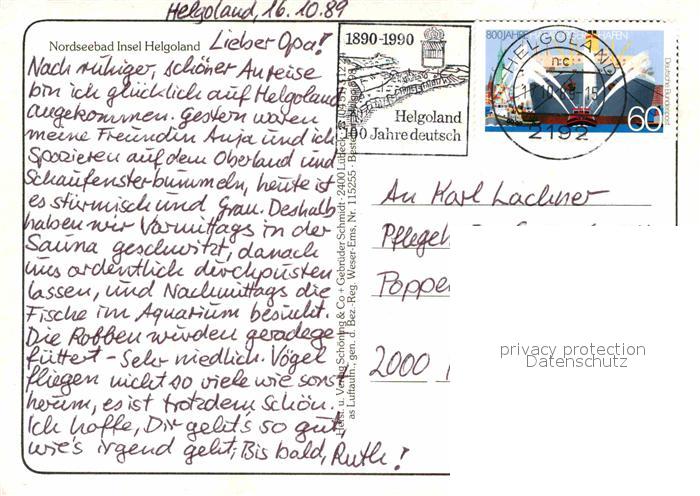 Helgoland, 16.10.89
Nordseebad Insel Helgoland
Lieber Opa!
Nach ruhiger, schöner Anreise
bin ich glücklich auf Helgoland
angekommen. Gestern waren
meine Freundin Anja und ich
Spazieren auf dem Oberland und
Schaufensterbummeln, heute ist
es stürmisch und Grau. Deshalb
haben wir Vormittags in der
Sauna geschwitzt, danach
uns ordentlich durchpusten
lassen, und Nachmittags die
Fische im Aquarium besucht.
Die Robben wurden geradege-
füttert - Sehr niedlich. Vögel
fliegen nicht so viele wie sonst
herum, es ist trotzdem schön.
Ich hoffe, Dir geht's so gut,
wie's irgend geht, Bis bald, Ruth!
Herst. u. Verlag Schöning & Co + Gebrüder Schmidt · 2400 Lübeck
as Luftaufn., gen. d. Bez.-Reg. Weser-Ems, Nr. 115255
1890-1990
Helgoland
100 Jahre deutsch
800 JAHRE HAFEN
Deutsche Bundespost
60
HELGOLAND
2192
An Karl Lachner
Pflegeh
Poppe
2000
privacy protection
Datenschutz